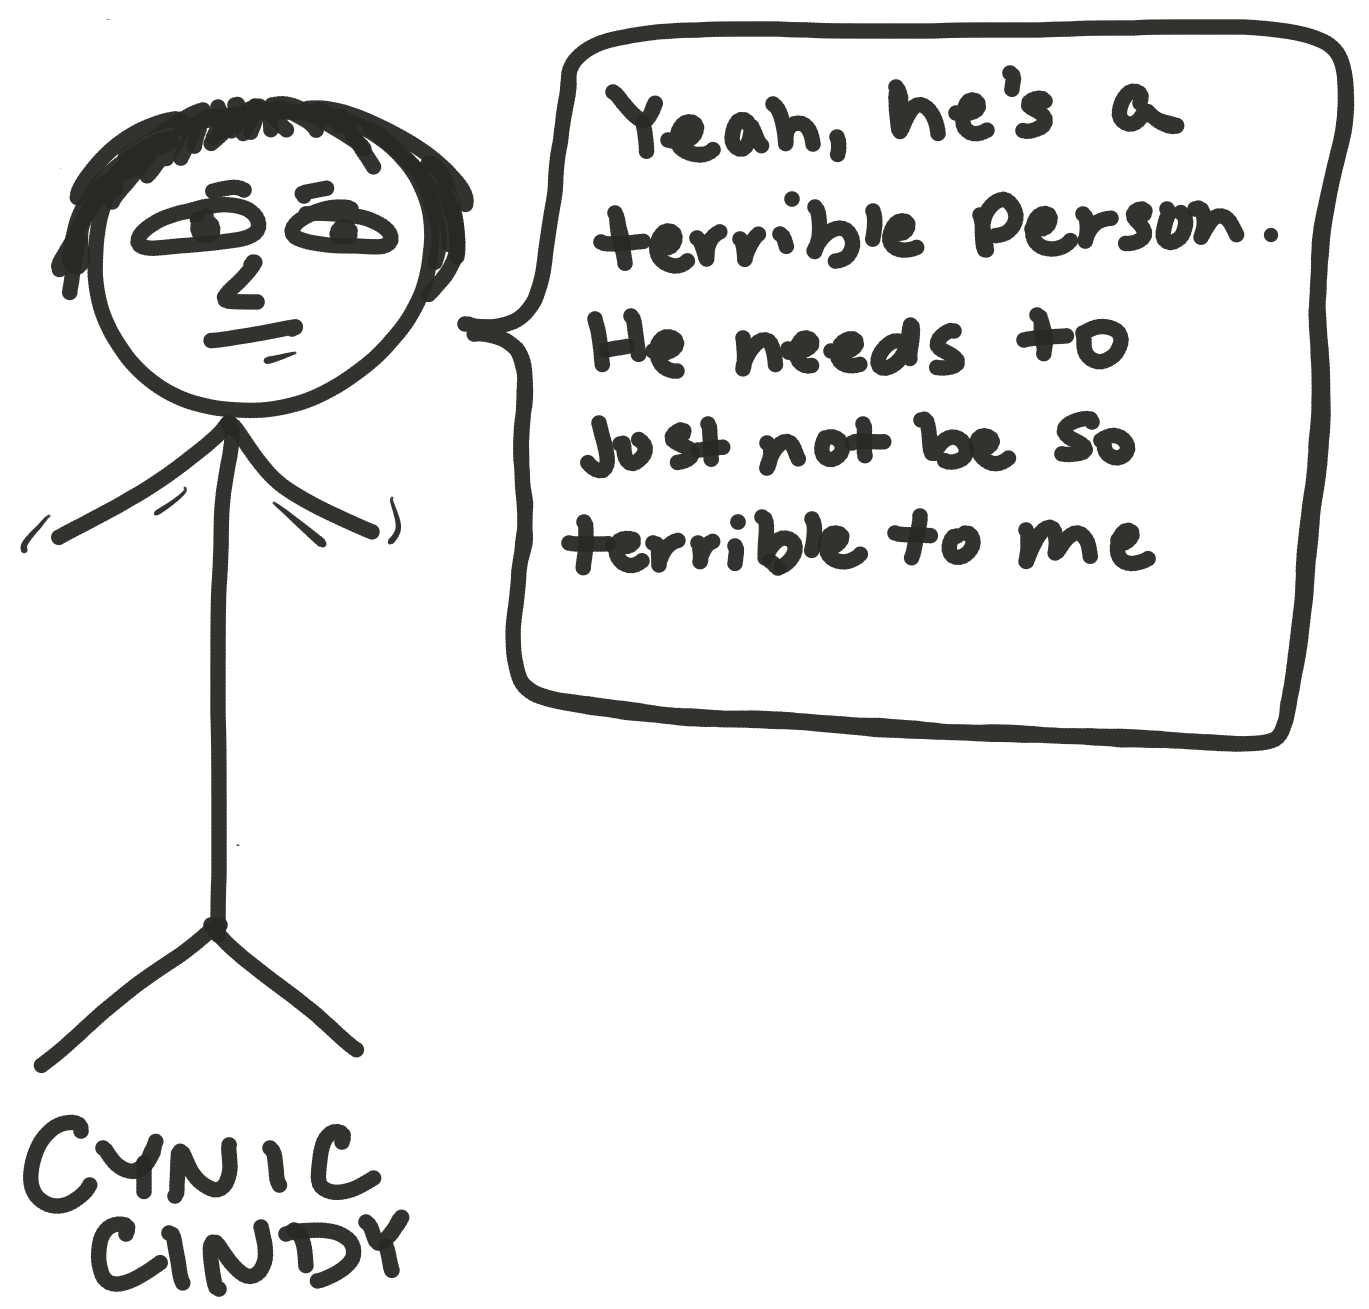 Yeah, he's a
terrible person.
He needs to
Just not be so
terrible to me
CYNIC
CINDY